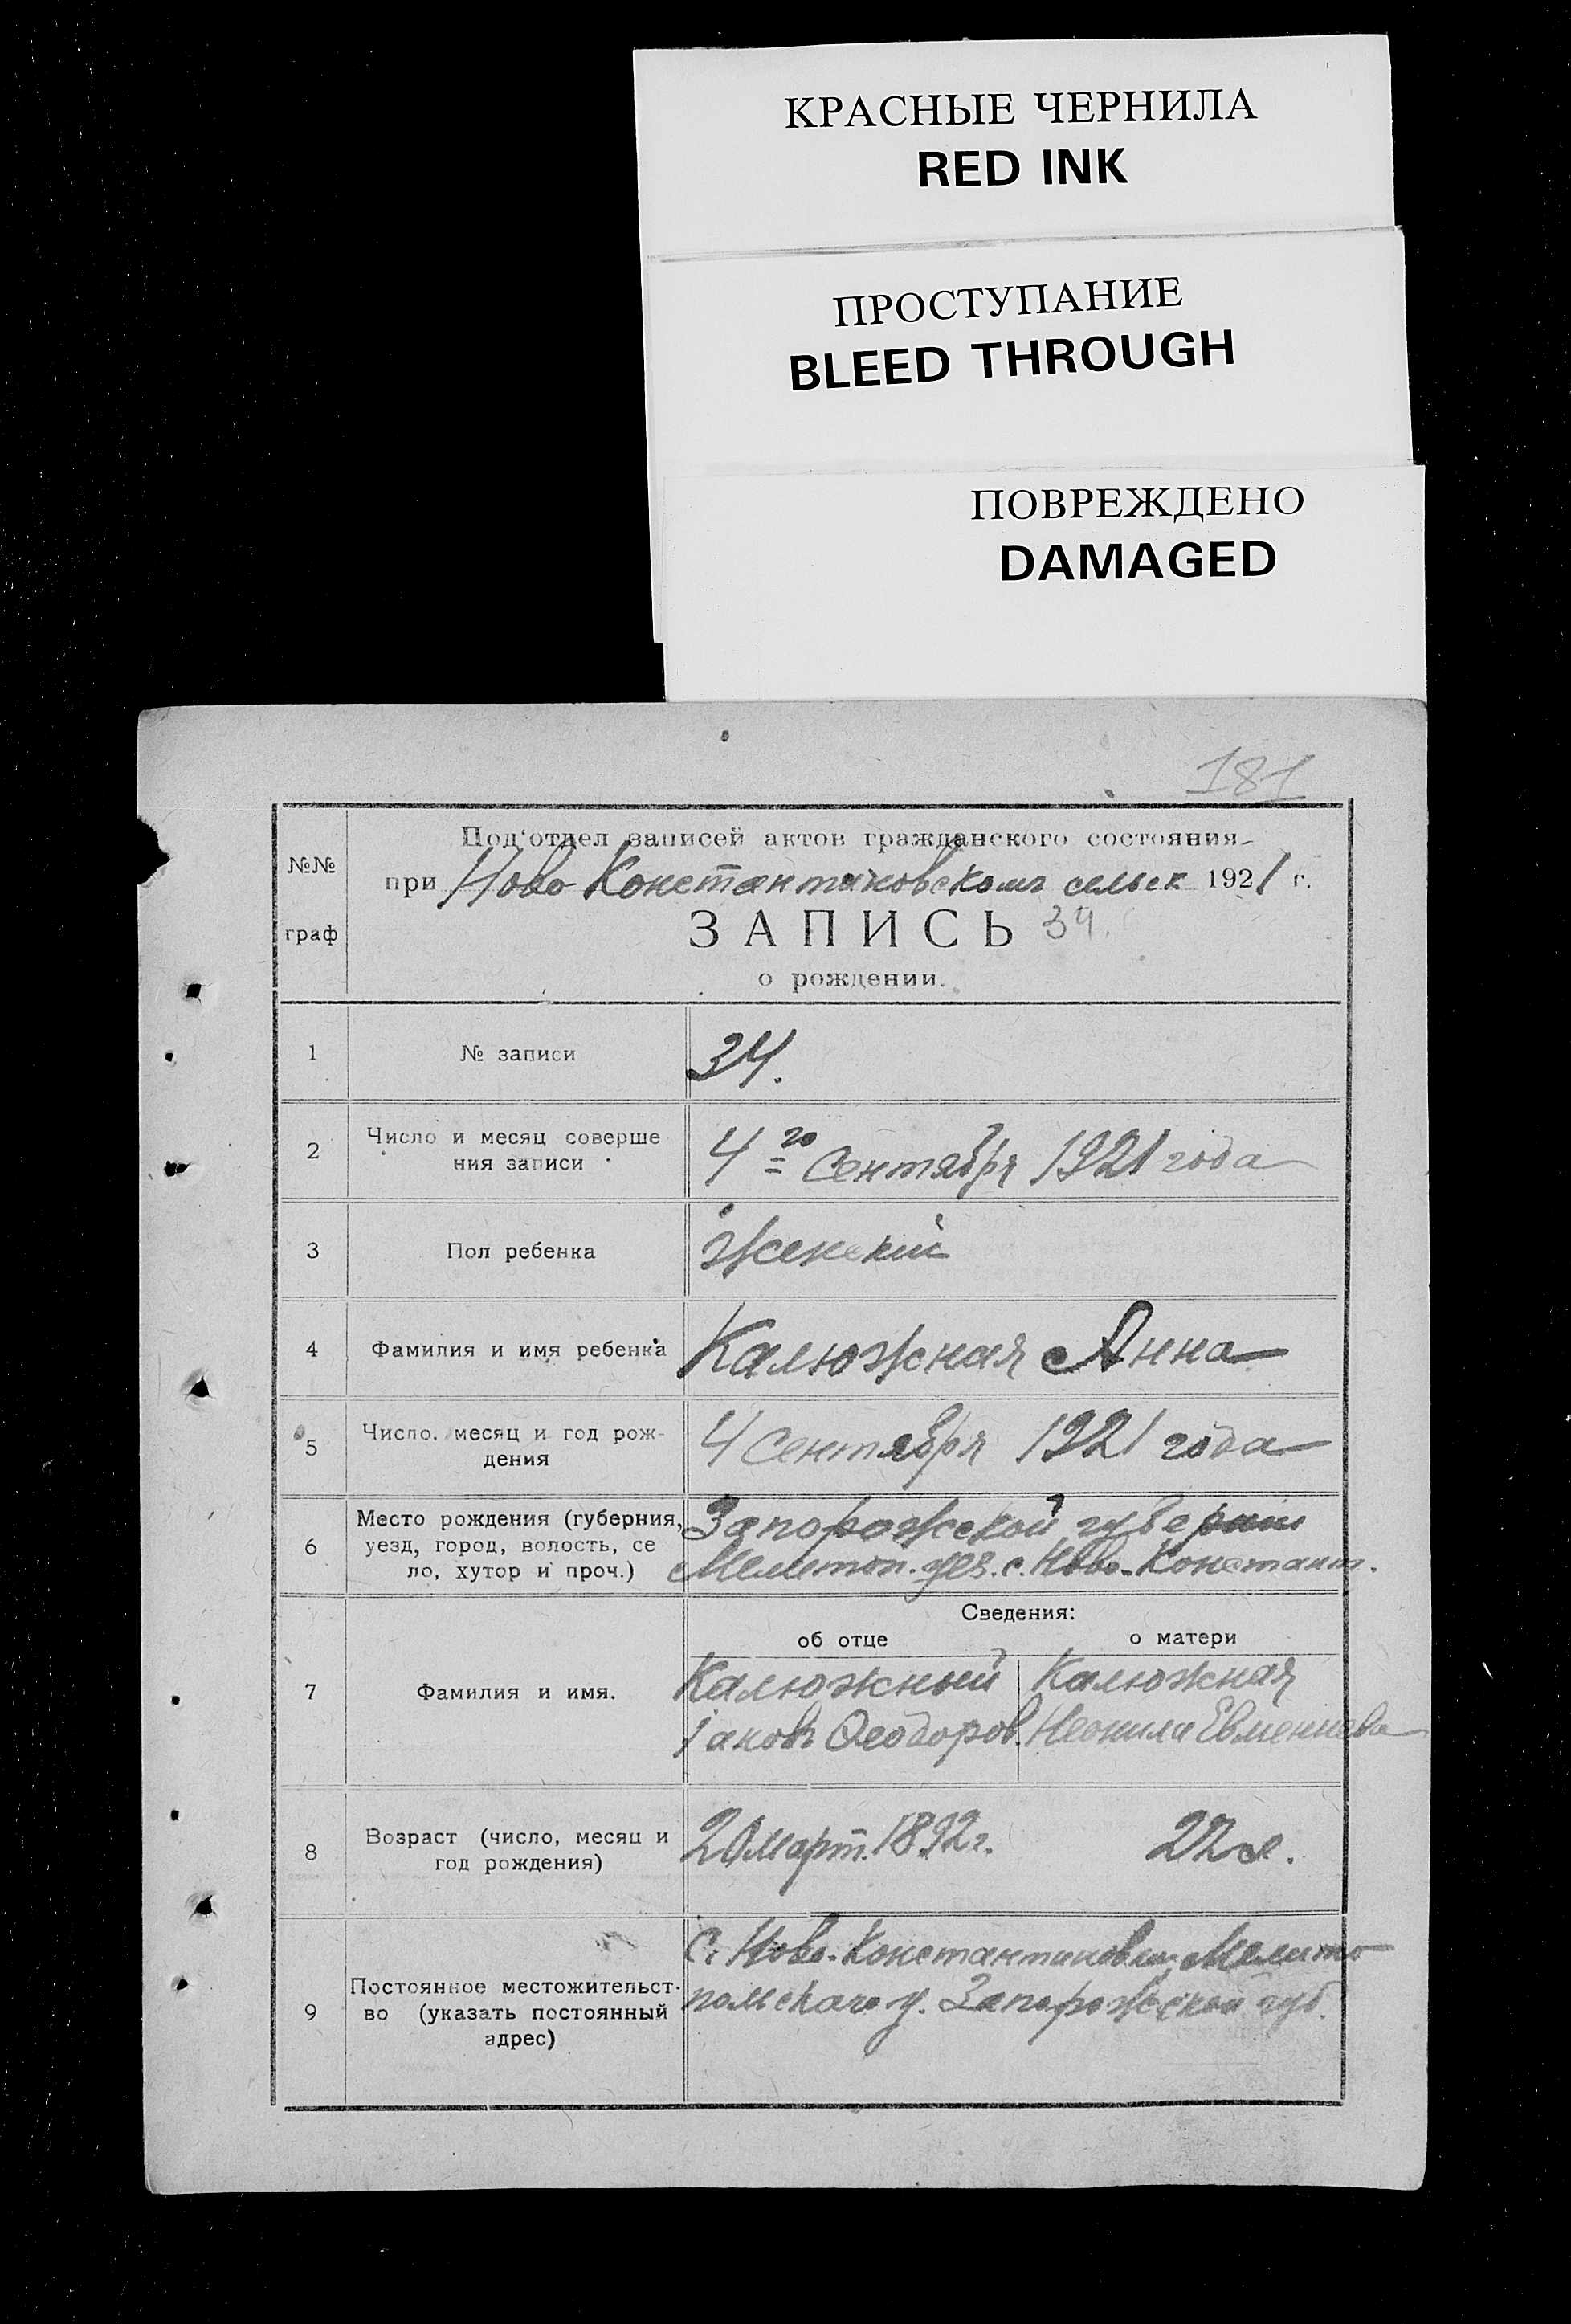 КРАСНЫЕ ЧЕРНИЛА
RED INK
ПРОСТУПАНИЕ
BLEED THROUGH
ПОВРЕЖДЕНО
DAMAGED
181
№№ граф
Под‘отдел записей актов гражданского состояния
при Ново Константиновскомъ сельск 1921 г.
ЗАПИСЬ 34.
о рождении.
1 № записи 34.
2 Число и месяц соверше
ния записи 4го Сентября 1921 года
3 Пол ребенка Женскій
4 Фамилия и имя ребенка Калюжная Анна
5 Число. месяц и год рож-
дения 4 Сентября 1921 года
6 Место рождения (губерния, Запорожской губернии
уезд, город, волость, се
ло, хутор и проч.) Мелитоп. уез. с. Ново-Констант
Сведения:
об отце о матери
7 Фамилия и имя. Калюжный Калюжная
Іаковъ Ѳеодоров. Неонила Евмениева
8 Возраст (число, месяц и
год рождения) 20 март. 1892 г. 22 л.
С. Ново-Константиновки Мелито
9 Постоянное местожительст-
во (указать постоянный
адрес) польскаго у. Запорожской губ.